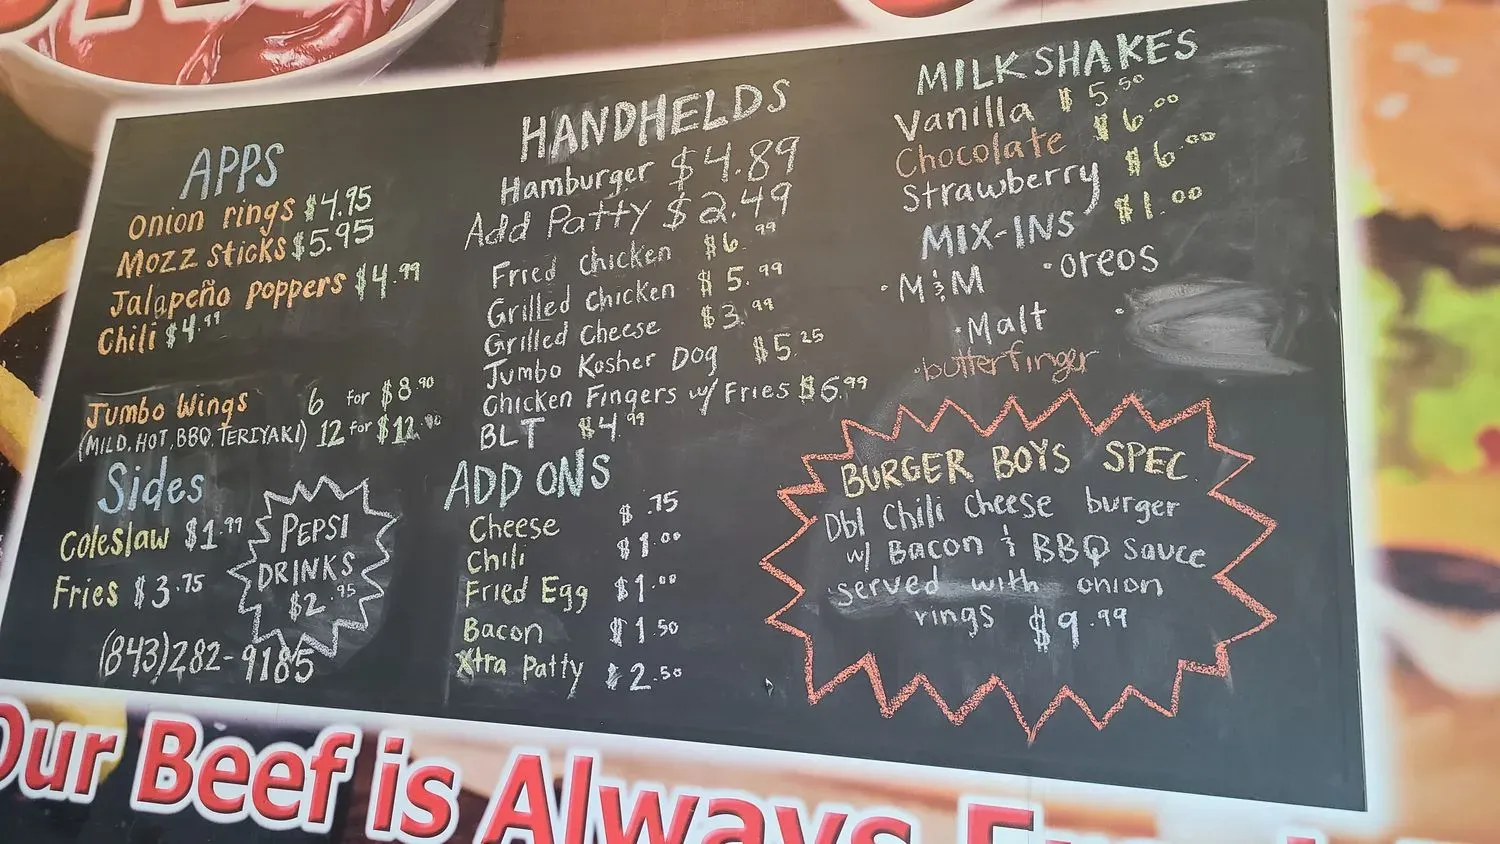 APPS
Onion rings $4.95
Mozz sticks $5.95
Jalapeño poppers $4.99
Chili $4.99
Jumbo Wings 6 for $8.90
(MILD, HOT, BBQ, TERIYAKI) 12 for $12.90
Sides
Coleslaw $1.99
Fries $3.75
PEPSI
DRINKS
$2.95
(843)282-9185
HANDHELDS
Hamburger $4.89
Add Patty $2.49
Fried Chicken $6.99
Grilled Chicken $5.99
Grilled Cheese $3.99
Jumbo Kosher Dog $5.25
Chicken Fingers w/ Fries $6.99
BLT $4.99
ADD ONS
Cheese $.75
Chili $1.00
Fried Egg $1.00
Bacon $1.50
Xtra Patty $2.50
MILKSHAKES
Vanilla $5.50
Chocolate $6.00
Strawberry $6.00
MIX-INS $1.00
·M&M ·Oreos
·Malt ·
·butterfinger
BURGER BOYS SPEC.
Dbl Chili Cheese burger
w/ Bacon & BBQ Sauce
served with onion
rings $9.99
Our Beef is Always